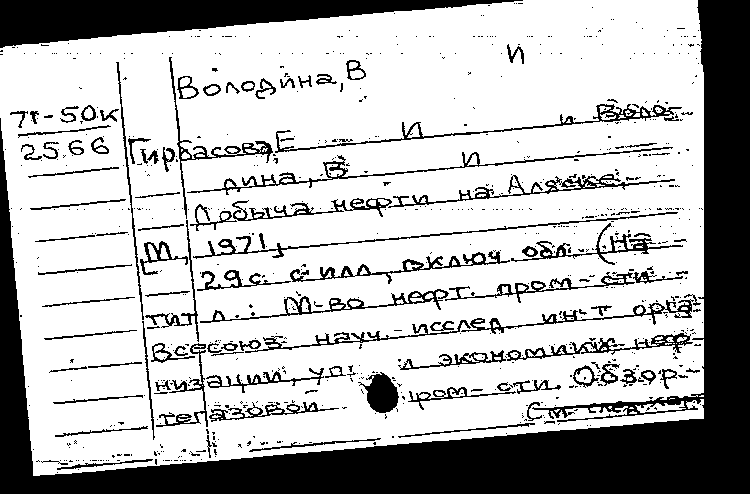 Володина, В И
71-50к
2566
Гирбасова, Е И и Воло-
дина, В И
Добыча нефти на Аляске.-
[М., 1971]
29 с. с илл., включ. обл. (На
тит л.: М-во нефт. пром-сти.
Всесоюз науч.-исслед. ин-т орга-
низации, упр и экономики неф-
тегазовой пром-сти. Обзор.
См след карт